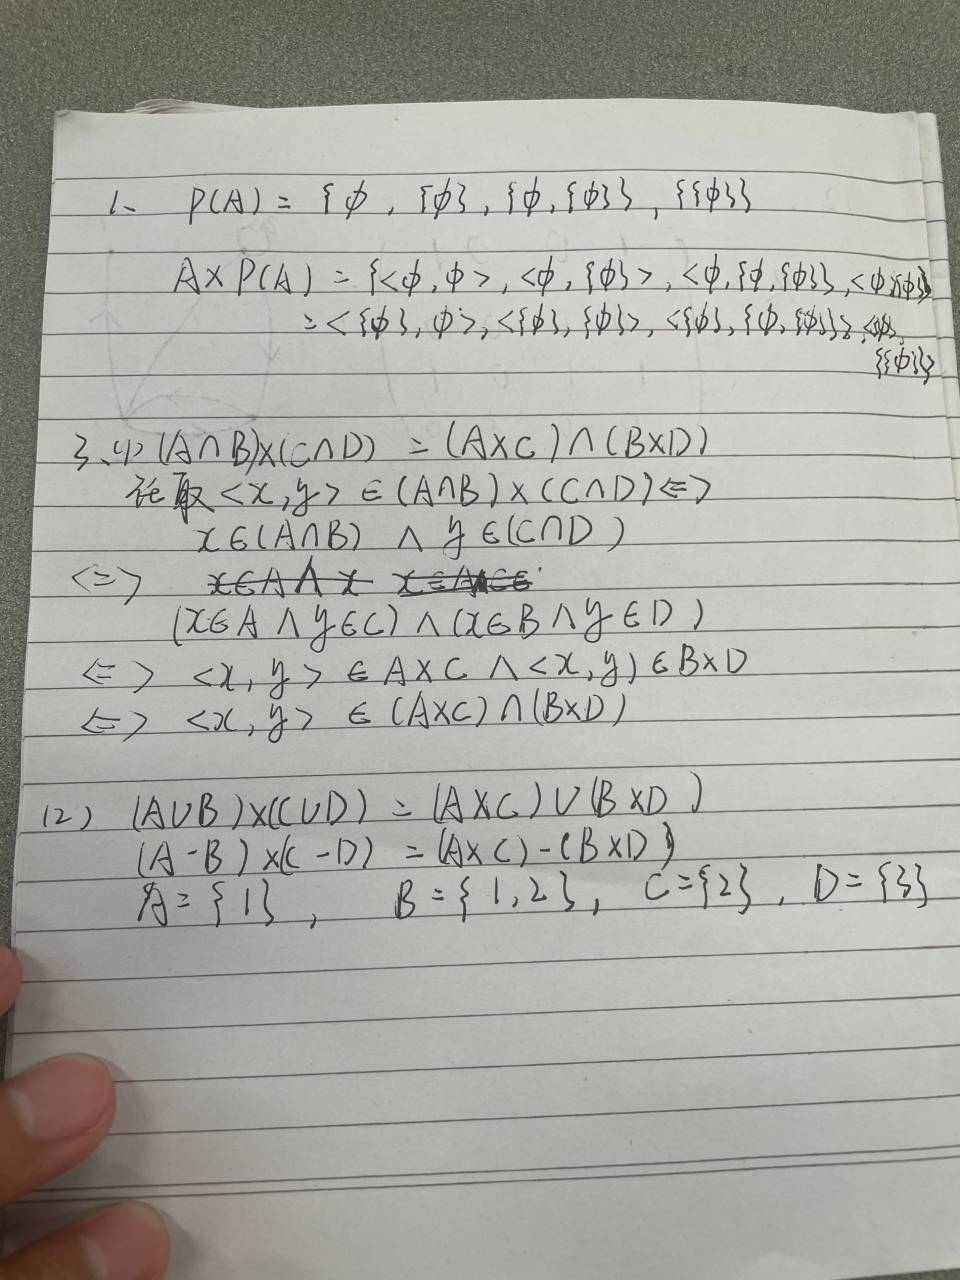 1、 P(A) = {ϕ, {ϕ}, {ϕ,{ϕ}}, {{ϕ}}
A×P(A) = {<ϕ,ϕ>, <ϕ,{ϕ}>, <ϕ,{ϕ,{ϕ}}, <ϕ,{ϕ}}
=<{ϕ},ϕ>, <{ϕ},{ϕ}>, <{ϕ},{ϕ,{ϕ}}>, <ϕ,
{{ϕ}}>
3、(1) (A∩B)×(C∩D) = (A×C)∩(B×D)
取<x,y> ∈ (A∩B)×(C∩D) <=>
x∈(A∩B) ∧ y∈(C∩D)
<=>
(x∈A ∧ y∈C) ∧ (x∈B ∧ y∈D)
<=> <x,y> ∈ A×C ∧ <x,y) ∈ B×D
<=> <x,y> ∈ (A×C)∩(B×D)
(2) (A∪B)×(C∪D) = (A×C)∪(B×D)
(A-B)×(C-D) = (A×C)-(B×D)
A={1}, B={1,2}, C={2}, D={3}